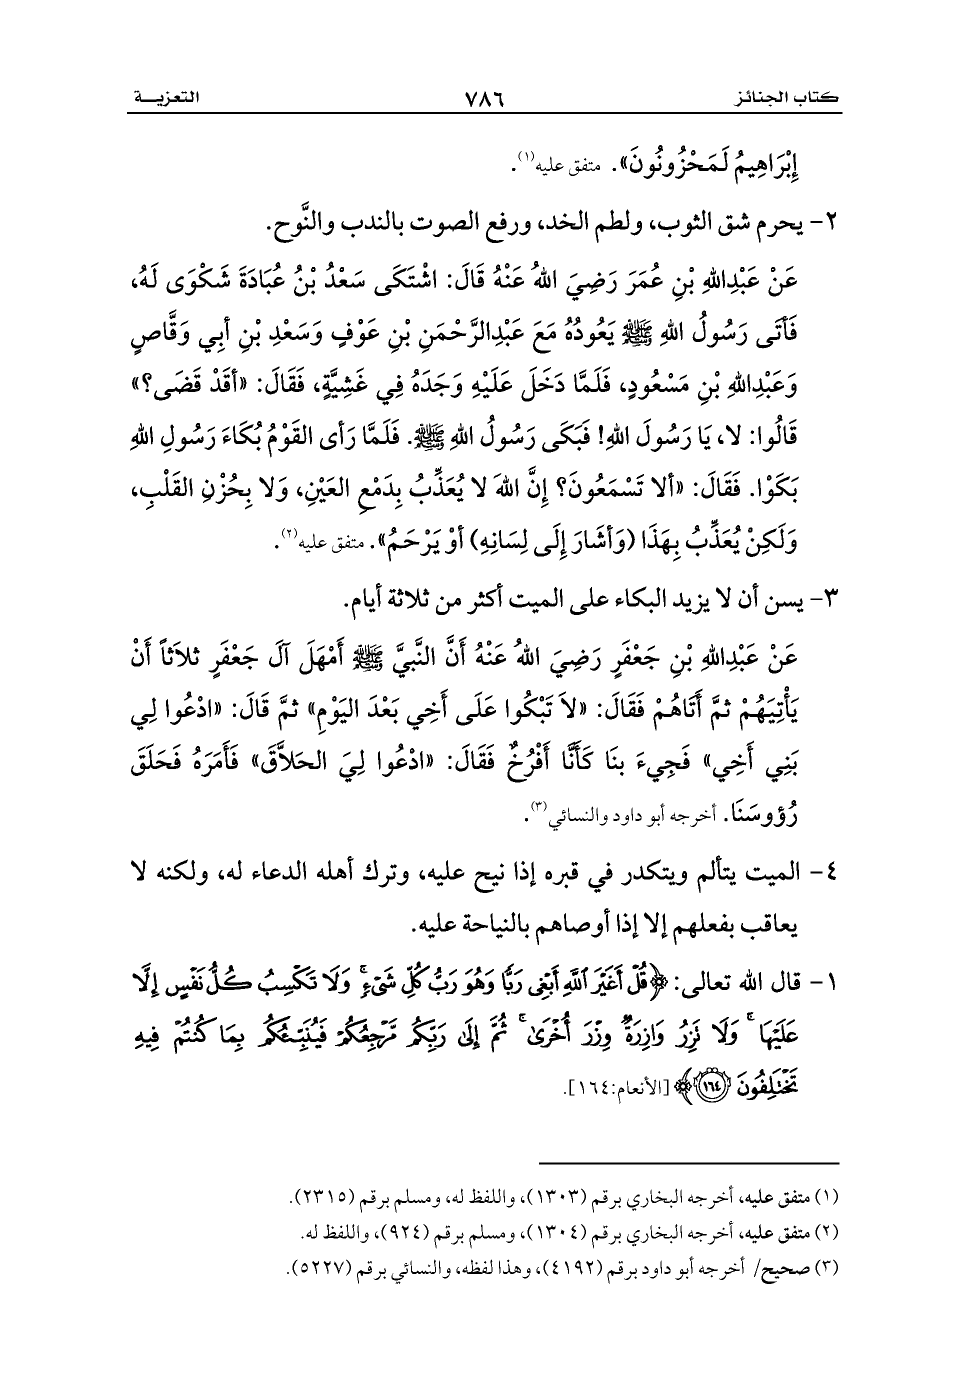 كتاب الجنائز ٧٨٦ التعزيــة
إِبْرَاهِيمُ لَمَحْزُونُونَ». متفق عليه(١).
٢- يحرم شق الثوب، ولطم الخد، ورفع الصوت بالندب والنَّوح.
عَنْ عَبْدِاللهِ بْنِ عُمَرَ رَضِيَ اللهُ عَنْهُ قَالَ: اشْتَكَى سَعْدُ بْنُ عُبَادَةَ شَكْوَى لَهُ،
فَأَتَى رَسُولُ اللهِ ﷺ يَعُودُهُ مَعَ عَبْدِالرَّحْمَنِ بْنِ عَوْفٍ وَسَعْدِ بْنِ أبِي وَقَّاصٍ
وَعَبْدِاللهِ بْنِ مَسْعُودٍ، فَلَمَّا دَخَلَ عَلَيْهِ وَجَدَهُ فِي غَشِيَّةٍ، فَقَالَ: «أقَدْ قَضَى؟»
قَالُوا: لا، يَا رَسُولَ اللهِ! فَبَكَى رَسُولُ اللهِ ﷺ. فَلَمَّا رَأى القَوْمُ بُكَاءَ رَسُولِ اللهِ
بَكَوْا. فَقَالَ: «ألا تَسْمَعُونَ؟ إِنَّ اللهَ لا يُعَذِّبُ بِدَمْعِ العَيْنِ، وَلا بِحُزْنِ القَلْبِ،
وَلَكِنْ يُعَذِّبُ بِهَذَا (وَأشَارَ إِلَى لِسَانِهِ) أوْ يَرْحَمُ». متفق عليه(٢).
٣- يسن أن لا يزيد البكاء على الميت أكثر من ثلاثة أيام.
عَنْ عَبْدِاللهِ بْنِ جَعْفَرٍ رَضِيَ اللهُ عَنْهُ أَنَّ النَّبِيَّ ﷺ أَمْهَلَ آلَ جَعْفَرٍ ثلاَثاً أَنْ
يَأْتِيَهُمْ ثمَّ أَتَاهُمْ فَقَالَ: «لاَ تَبْكُوا عَلَى أَخِي بَعْدَ اليَوْمِ» ثمَّ قَالَ: «ادْعُوا لِي
بَنِي أَخِي» فَجِيءَ بنَا كَأَنَّا أَفْرُخٌ فَقَالَ: «ادْعُوا لِيَ الحَلاَّقَ» فَأَمَرَهُ فَحَلَقَ
رُؤوسَنَا. أخرجه أبو داود والنسائي(٣).
٤- الميت يتألم ويتكدر في قبره إذا نيح عليه، وترك أهله الدعاء له، ولكنه لا
يعاقب بفعلهم إلا إذا أوصاهم بالنياحة عليه.
١- قال الله تعالى: ﴿قُلْ أَغَيْرَ ٱللَّهِ أَبْغِى رَبًّا وَهُوَ رَبُّ كُلِّ شَىْءٍۚ وَلَا تَكْسِبُ كُلُّ نَفْسٍ إِلَّا
عَلَيْهَاۚ وَلَا تَزِرُ وَازِرَةٌ وِزْرَ أُخْرَىٰۚ ثُمَّ إِلَىٰ رَبِّكُم مَّرْجِعُكُمْ فَيُنَبِّئُكُم بِمَا كُنتُمْ فِيهِ
تَخْتَلِفُونَ ١٦٤﴾ [الأنعام:١٦٤].
(١) متفق عليه، أخرجه البخاري برقم (١٣٠٣)، واللفظ له، ومسلم برقم (٢٣١٥).
(٢) متفق عليه، أخرجه البخاري برقم (١٣٠٤)، ومسلم برقم (٩٢٤)، واللفظ له.
(٣) صحيح/ أخرجه أبو داود برقم (٤١٩٢)، وهذا لفظه، والنسائي برقم (٥٢٢٧).